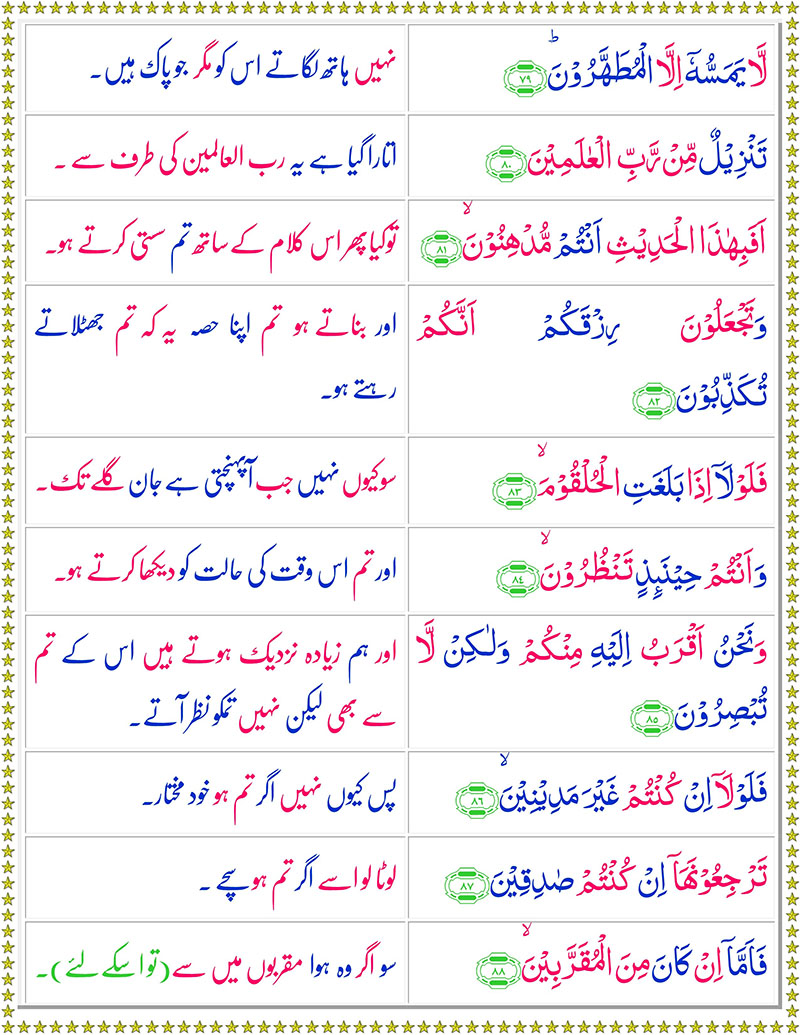 لَّا يَمَسُّهٗۤ اِلَّا الْمُطَهَّرُوْنَؕ ﴿۷۹﴾
نہیں ہاتھ لگاتے اس کو مگر جو پاک ہیں۔
تَنْزِيْلٌ مِّنْ رَّبِّ الْعٰلَمِيْنَ ﴿۸۰﴾
اتارا گیا ہے یہ رب العالمین کی طرف سے ۔
اَفَبِهٰذَا الْحَدِيْثِ اَنْتُمْ مُّدْهِنُوْنَۙ ﴿۸۱﴾
تو کیا پھر اس کلام کے ساتھ تم سستی کرتے ہو۔
وَتَجْعَلُوْنَ رِزْقَكُمْ اَنَّكُمْ
تُكَذِّبُوْنَ ﴿۸۲﴾
اور بناتے ہو تم اپنا حصہ یہ کہ تم جھٹلاتے
رہتے ہو۔
فَلَوْلَاۤ اِذَا بَلَغَتِ الْحُلْقُوْمَۙ ﴿۸۳﴾
سو کیوں نہیں جب آپہنچتی ہے جان گلے تک۔
وَاَنْتُمْ حِيْنَئِذٍ تَنْظُرُوْنَۙ ﴿۸۴﴾
اور تم اس وقت کی حالت کو دیکھا کرتے ہو۔
وَنَحْنُ اَقْرَبُ اِلَيْهِ مِنْكُمْ وَلٰكِنْ لَّا
تُبْصِرُوْنَ ﴿۸۵﴾
اور ہم زیادہ نزدیک ہوتے ہیں اس کے تم
سے بھی لیکن نہیں تمکو نظر آتے۔
فَلَوْلَاۤ اِنْ كُنْتُمْ غَيْرَ مَدِيْنِيْنَۙ ﴿۸۶﴾
پس کیوں نہیں اگر تم ہو خود مختار۔
تَرْجِعُوْنَهَاۤ اِنْ كُنْتُمْ صٰدِقِيْنَ ﴿۸۷﴾
لوٹا لو اسے اگر تم ہو سچے ۔
فَاَمَّاۤ اِنْ كَانَ مِنَ الْمُقَرَّبِيْنَۙ ﴿۸۸﴾
سو اگر وہ ہوا مقربوں میں سے (تو اسکے لئے)۔